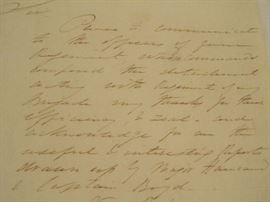 Sir
Please to communicate
to the officers of your
Regiment who commanded
composed the detachment
acting with Regiment of my
Brigade my thanks for their
efficiency & zeal - and
acknowledge for me the
useful & interesting Reports
drawn up by Major
& Captain Boyd -